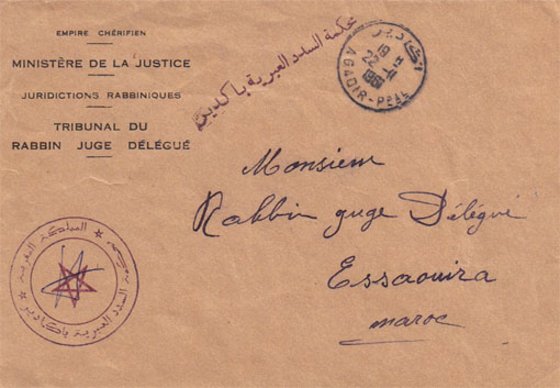 EMPIRE CHÉRIFIEN
MINISTÈRE DE LA JUSTICE
JURIDICTIONS RABBINIQUES
TRIBUNAL DU
RABBIN JUGE DÉLÉGUÉ
محكمة السدد العبرية باكدير
اكادير
18
22
1961
AGADIR-PPAL
Monsieur
Rabbin juge Délégué
Essaouira
maroc
المملكة المغربية
السدد العبرية باكادير